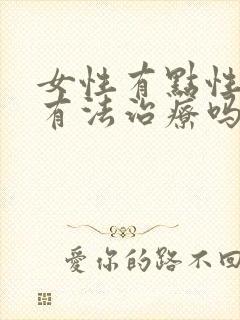 女性有點性
有法治療吗
愛你的路不回